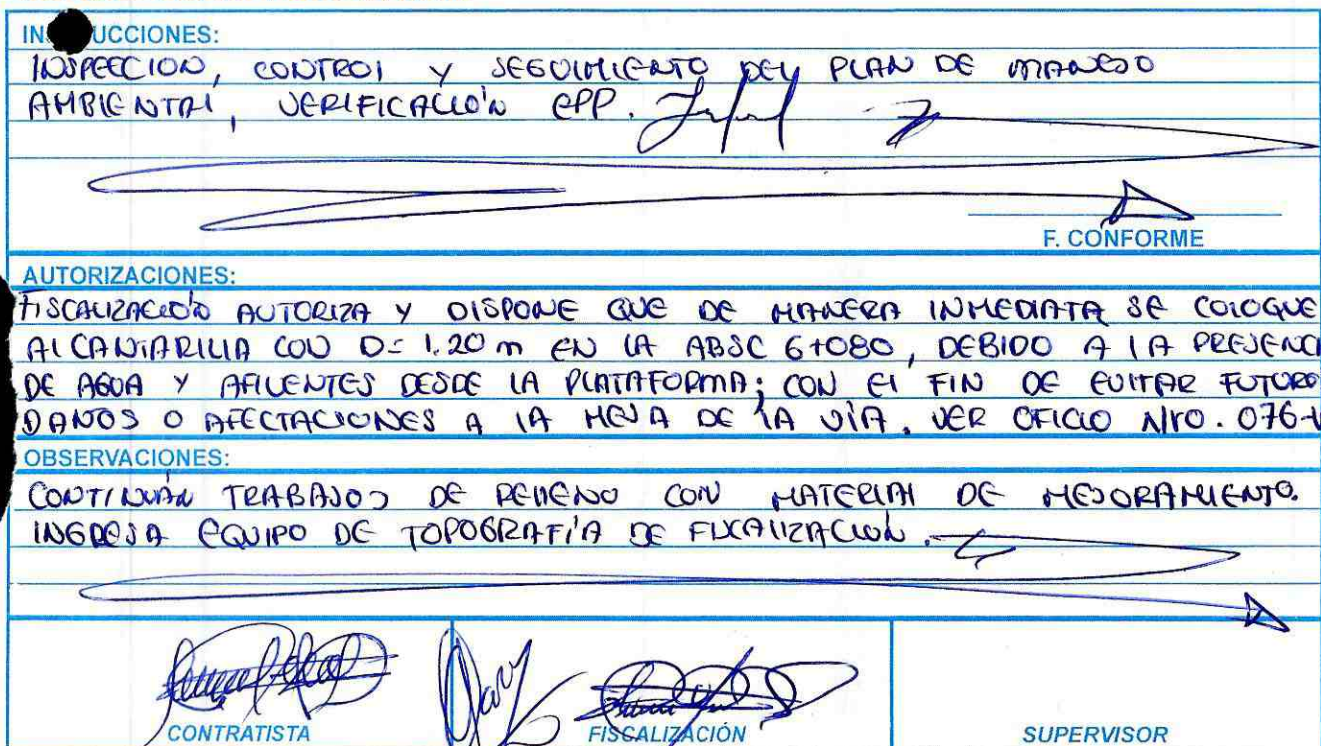 IN UCCIONES:
INSPECCION, CONTROL Y SEGUIMIENTO DEL PLAN DE MANEJO
AMBIENTAL, VERIFICACIÓN EPP.
F. CONFORME
AUTORIZACIONES:
FISCALIZACIÓN AUTORIZA Y DISPONE QUE DE MANERA INMEDIATA SE COLOQUE
ALCANTARILLA CON D= 1.20 m EN LA ABSC 6+080, DEBIDO A LA PRESENCI
DE AGUA Y AFLUENTES DESDE LA PLATAFORMA; CON EL FIN DE EVITAR FUTURO
DAÑOS O AFECTACIONES A LA MESA DE LA VÍA. VER OFICIO NRO. 076-
OBSERVACIONES:
CONTINUAN TRABAJOS DE RELLENO CON MATERIAL DE MEJORAMIENTO.
INGRESA EQUIPO DE TOPOGRAFÍA DE FISCALIZACIÓN.
CONTRATISTA FISCALIZACIÓN SUPERVISOR